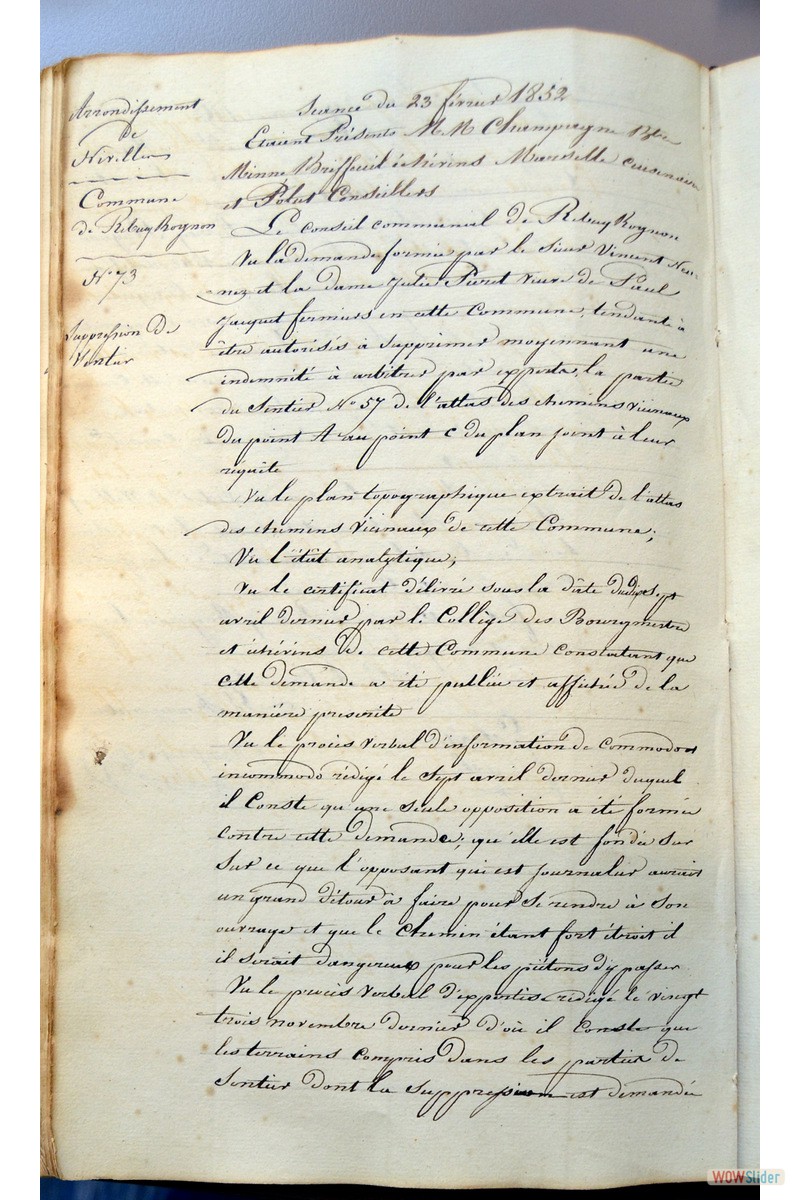 Arrondissement
de
Nivelles
Commune
de Rebecq Rognon
N° 73
Suppression de
Sentier
Seance du 23 février 1852
Etaient Présents MM Champagne Btre
Minne Briffeuil échévins Marselle
et Polut Conseillers
Le conseil communal de Rebecq Rognon
Vu la demande formée par le Sieur Vincent
et la dame Julie Piret veuve de Paul
Jacquet fermiers en cette Commune, tendante à
être autorisés à supprimer moyennant une
indemnité à arbitrer par experts, la partie
du Sentier N° 57 de l'atlas des chemins vicinaux
du point A au point C du plan joint à leur
réquête
Vu le plan topographique extrait de l'atlas
des chemins vicinaux de cette Commune;
Vu l'état analytique;
Vu le certificat délivré sous la date du dix sept
avril dernier par le Collége des Bourgmestre
et échévins de cette Commune constatant que
cette demande a été publiée et affichée de la
manière prescrite
Vu le procès verbal d'information de commodo et
incommodo rédigé le sept avril dernier duquel
il conste qu'une seule opposition a été formée
contre cette demande, qu'elle est fondée sur
sur ce que l'opposant qui est journalier aurait
un grand détour à faire pour se rendre à son
ouvrage et que le chemin étant fort étroit il
il serait dangereux pour les piétons d'y passer
Vu le procès verbal d'expertise rédigé le vingt
trois novembre dernier d'où il conste que
les terrains compris dans les parties de
Sentier dont la suppression est demandée
WOWSlider